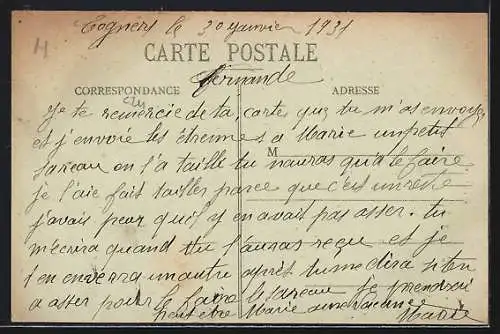 Cogners le 30 janvier 1931
CARTE POSTALE
Fernande
CORRESPONDANCE ADRESSE
Je te remercie de ta carte que tu m'as envoyer
et j'envoie les étrennes a Marie un petit
M
sareau on l'a taille tu nauras qu'a le faire
je l'aie fait tailler parce que c'est un reste
j'avais peur qu'il y en avait pas asser. tu
m'écrira quand tu l'auras reçu et je
t'en enverra un autre après tu me dira si ten
a asser pour le faire le sareau Je prendrai
peut être Marie
Marie